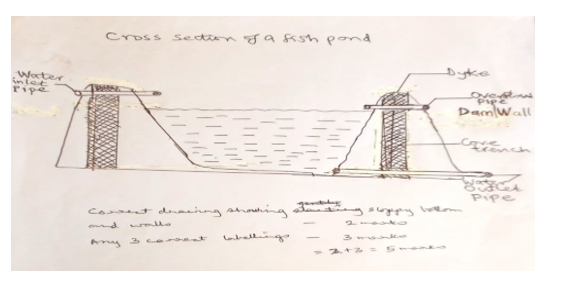 Cross section of a fish pond
Water
inlet
Pipe
Dyke
Overflow
pipe
Dam Wall
Core
trench
Water
Outlet
Pipe
Correct drawing showing gently sloppy bottom
and walls — 2 marks
Any 3 correct labellings — 3 marks
= 2+3 = 5 marks